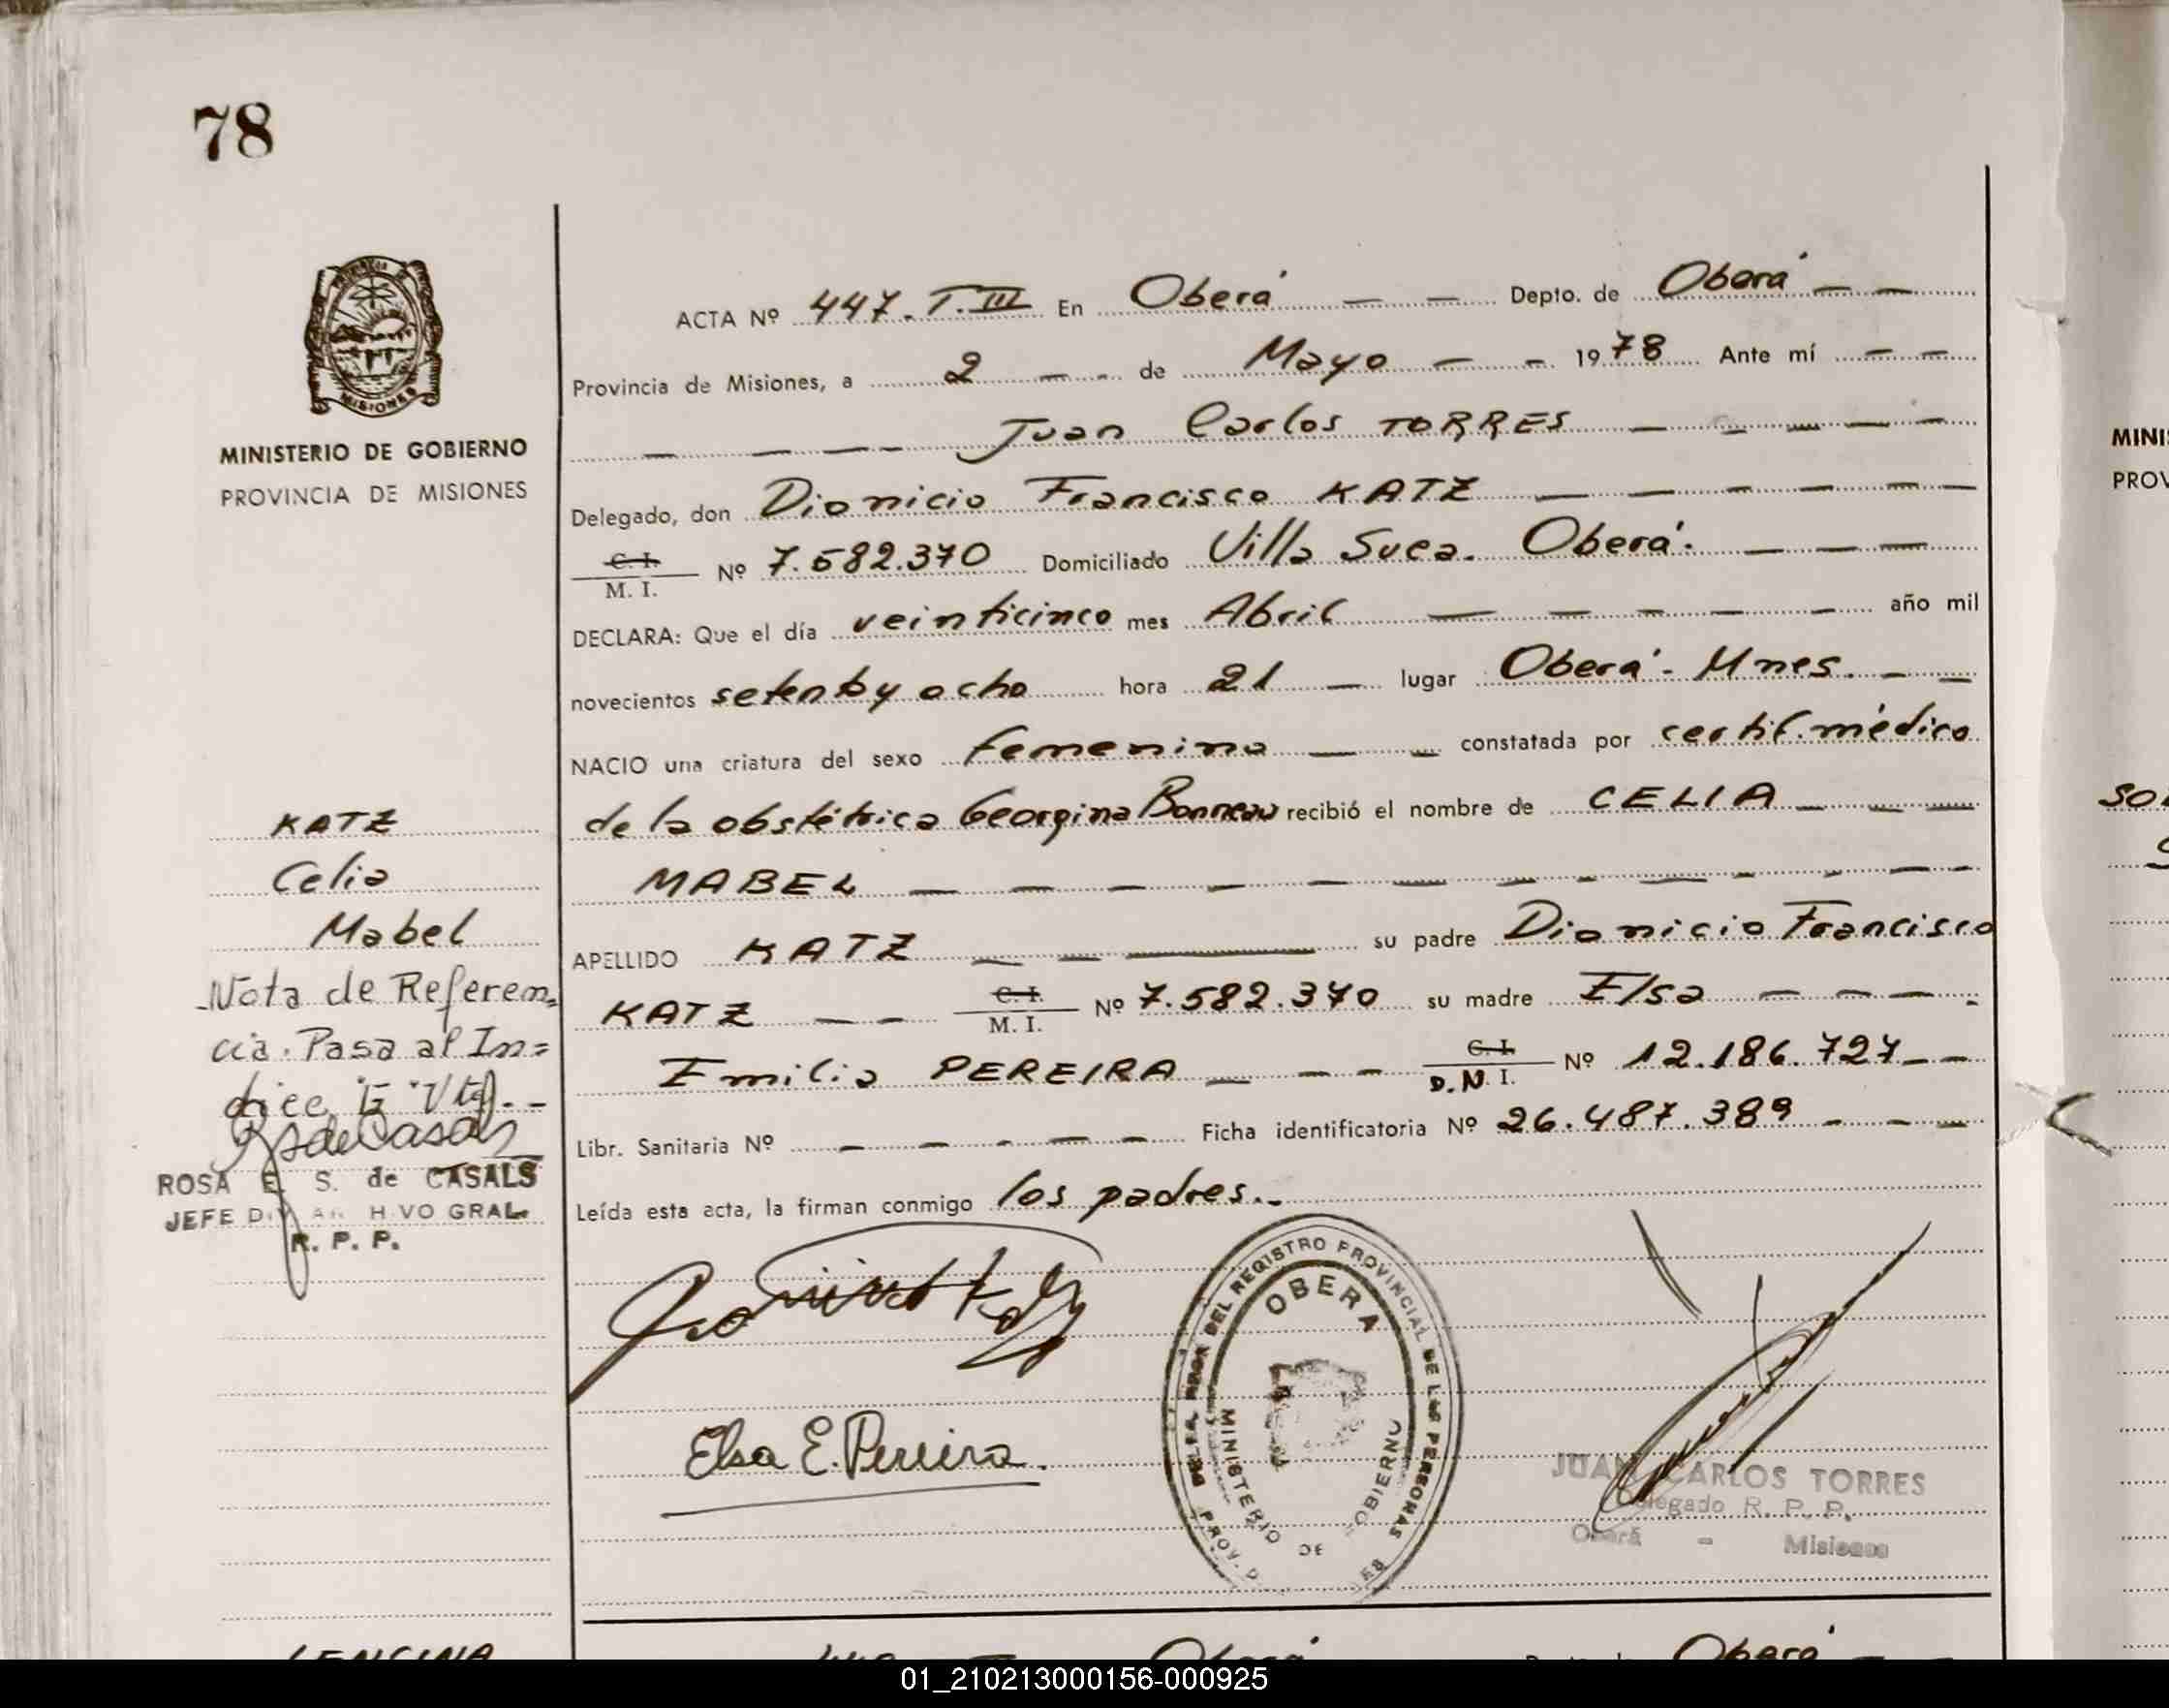 78
MINISTERIO DE GOBIERNO
PROVINCIA DE MISIONES
ACTA Nº 447. T.III En Oberá Depto. de Oberá
Provincia de Misiones, a 2 de Mayo 1978 Ante mí
Juan Carlos TORRES
Delegado, don Dionicio Francisco KATZ
C. I. / M. I. Nº 7.582.370 Domiciliado Villa Suea. Oberá.
DECLARA: Que el día veinticinco mes Abril año mil
novecientos setentay ocho hora 21 lugar Oberá - Mnes.
NACIO una criatura del sexo femenino constatada por certif. médico
de la obstétrica Georgina Bonneau recibió el nombre de CELIA
MABEL
APELLIDO KATZ su padre Dionicio Francisco
KATZ C. I. / M. I. Nº 7.582.370 su madre Elsa
Emilia PEREIRA C. I. / D.N.I. Nº 12.186.727
Libr. Sanitaria Nº Ficha identificatoria Nº 26.487.389
Leída esta acta, la firman conmigo los padres.
KATZ
Celia
Mabel
Nota de Referen=
cia. Pasa al In=
dice
ROSA E. S. de CASALS
JEFE DIV. ARCHIVO GRAL.
R. P. P.
Elsa E. Pereira.
DEL REGISTRO PROVINCIAL DE LAS PERSONAS
OBERA
MINISTERIO DE GOBIERNO
JUAN CARLOS TORRES
Delegado R. P. P.
Oberá - Misiones
MINI
PROV
SO
Oberá
Oberá
01_210213000156-000925